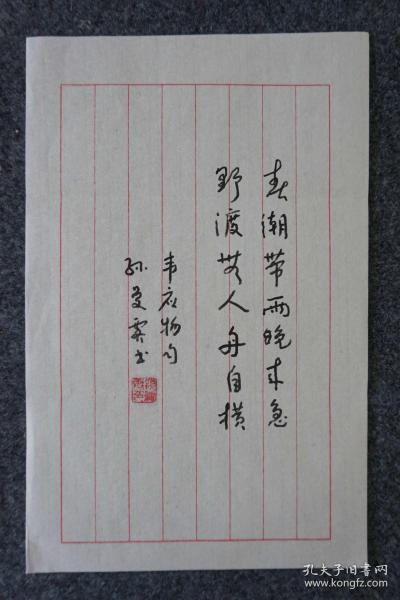 春潮带雨晚来急
野渡无人舟自横
韦应物句
孙受霖书
孔夫子旧书网
www.kongfz.com